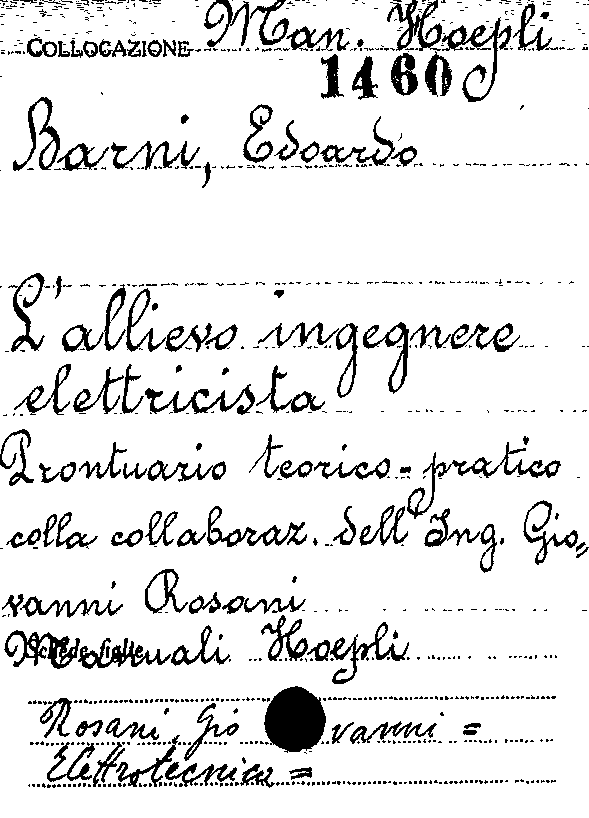 COLLOCAZIONE Man. Hoepli
1460
Barni, Edoardo
L'allievo ingegnere
elettricista
Prontuario teorico-pratico
colla collaboraz. dell'Ing. Gio=
vanni Rosani
Manuali Hoepli
Schede figlie
Rosani, Giovanni =
Elettrotecnica =